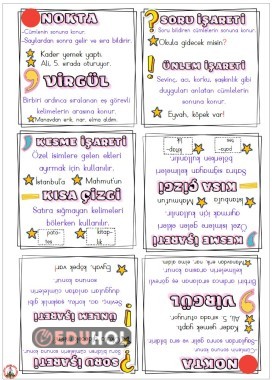 NOKTA
-Cümlenin sonuna konur.
-Sayılardan sonra gelir ve sıra bildirir.
Kader yemek yaptı.
Ali, 5. sırada oturuyor.
VİRGÜL
Birbiri ardınca sıralanan eş görevli
kelimelerin arasına konur.
Manavdan erik, nar, elma aldım.
SORU İŞARETİ
Soru bildiren cümlelerin sonuna konur.
Okula gidecek misin?
ÜNLEM İŞARETİ
Sevinç, acı, korku, şaşkınlık gibi
duyguları anlatan cümlelerin
sonuna konur.
Eyvah, köpek var!
KESME İŞARETİ
Özel isimlere gelen ekleri
ayırmak için kullanılır.
İstanbul'a
Mahmut'un
KISA ÇİZGİ
Satıra sığmayan kelimeleri
bölerken kullanılır.
pata-
tes
kitap-
lık
KESME İŞARETİ
Özel isimlere gelen ekleri
ayırmak için kullanılır.
İstanbul'a
Mahmut'un
KISA ÇİZGİ
Satıra sığmayan kelimeleri
bölerken kullanılır.
pata-
tes
kitap-
lık
SORU İŞARETİ
Soru bildiren cümlelerin sonuna konur.
ÜNLEM İŞARETİ
Sevinç, acı, korku, şaşkınlık gibi
duyguları anlatan cümlelerin
sonuna konur.
Eyvah, köpek var!
EDUHOL
NOKTA
-Cümlenin sonuna konur.
-Sayılardan sonra gelir ve sıra bildirir.
Kader yemek yaptı.
Ali, 5. sırada oturuyor.
VİRGÜL
Birbiri ardınca sıralanan eş görevli
kelimelerin arasına konur.
Manavdan erik, nar, elma aldım.